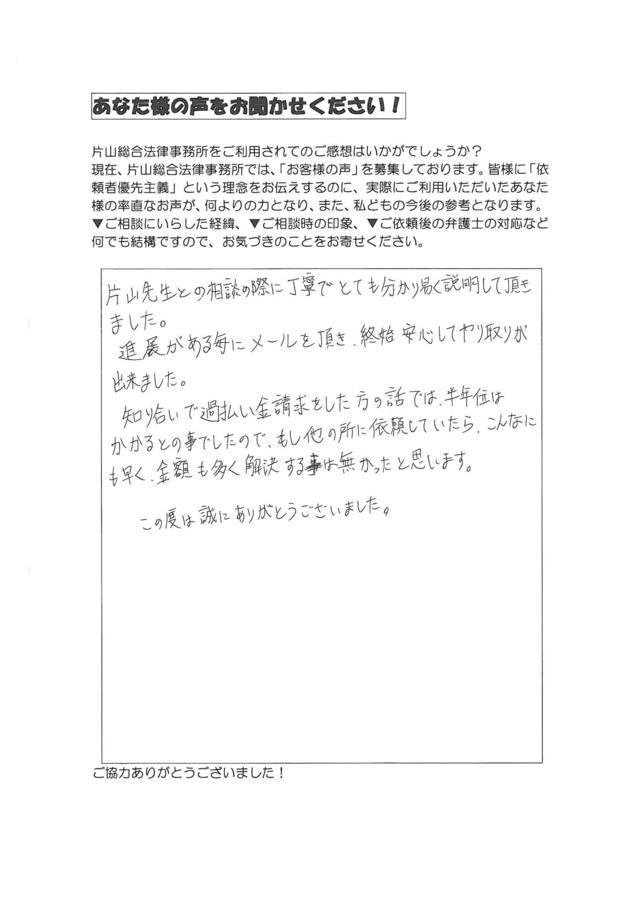 あなた様の声をお聞かせください！
片山総合法律事務所をご利用されてのご感想はいかがでしょうか？
現在、片山総合法律事務所では、「お客様の声」を募集しております。皆様に「依
頼者優先主義」という理念をお伝えするのに、実際にご利用いただいたあなた
様の率直なお声が、何よりの力となり、また、私どもの今後の参考となります。
▼ご相談にいらした経緯、▼ご相談時の印象、▼ご依頼後の弁護士の対応など
何でも結構ですので、お気づきのことをお寄せください。
片山先生との相談の際に丁寧でとても分かり易く説明して頂き
ました。
進展がある毎にメールを頂き、終始安心してヤリ取りが
出来ました。
知り合いで過払い金請求をした方の話では、半年位は
かかるとの事でしたので、もし他の所に依頼していたら、こんなに
も早く、金額も多く解決する事は無かったと思います。
この度は誠にありがとうございました。
ご協力ありがとうございました！